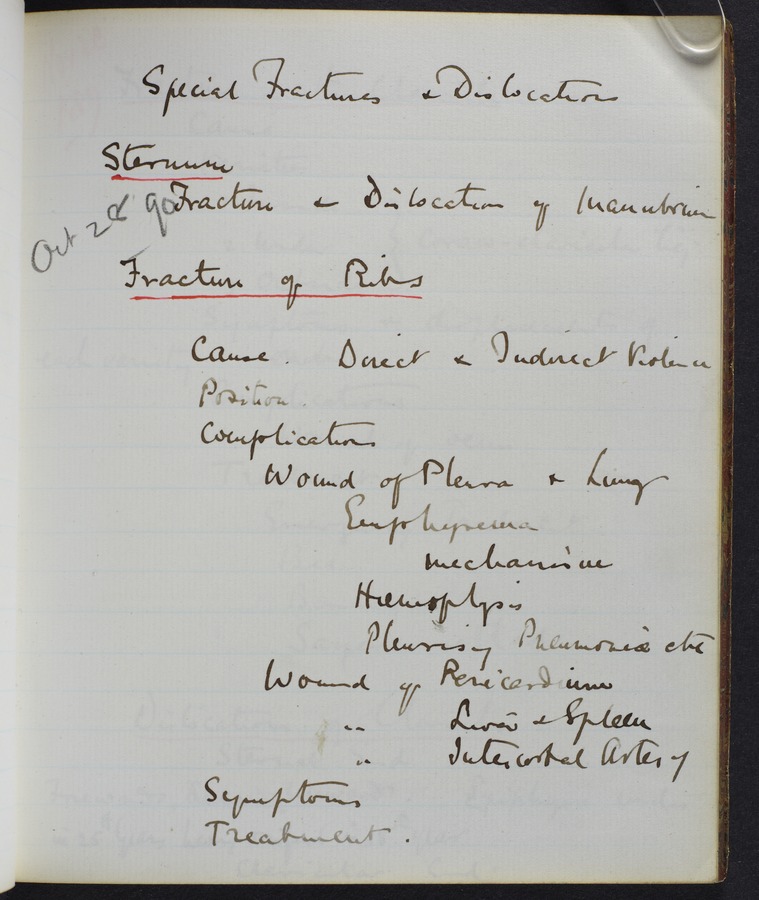 Special Fractures & Dislocations
Sternum
Oct 28 90
Fracture & Dislocation of Manubrium
Fracture of Ribs
Cause. Direct & Indirect Violence
Position.
Complications
Wound of Pleura & Lung
Emphysema
mechanism
Hæmoptysis
Pleurisy Pneumonia etc
Wound of Pericardium
" Liver & Spleen
" Intercostal Artery
Symptoms
Treatment.